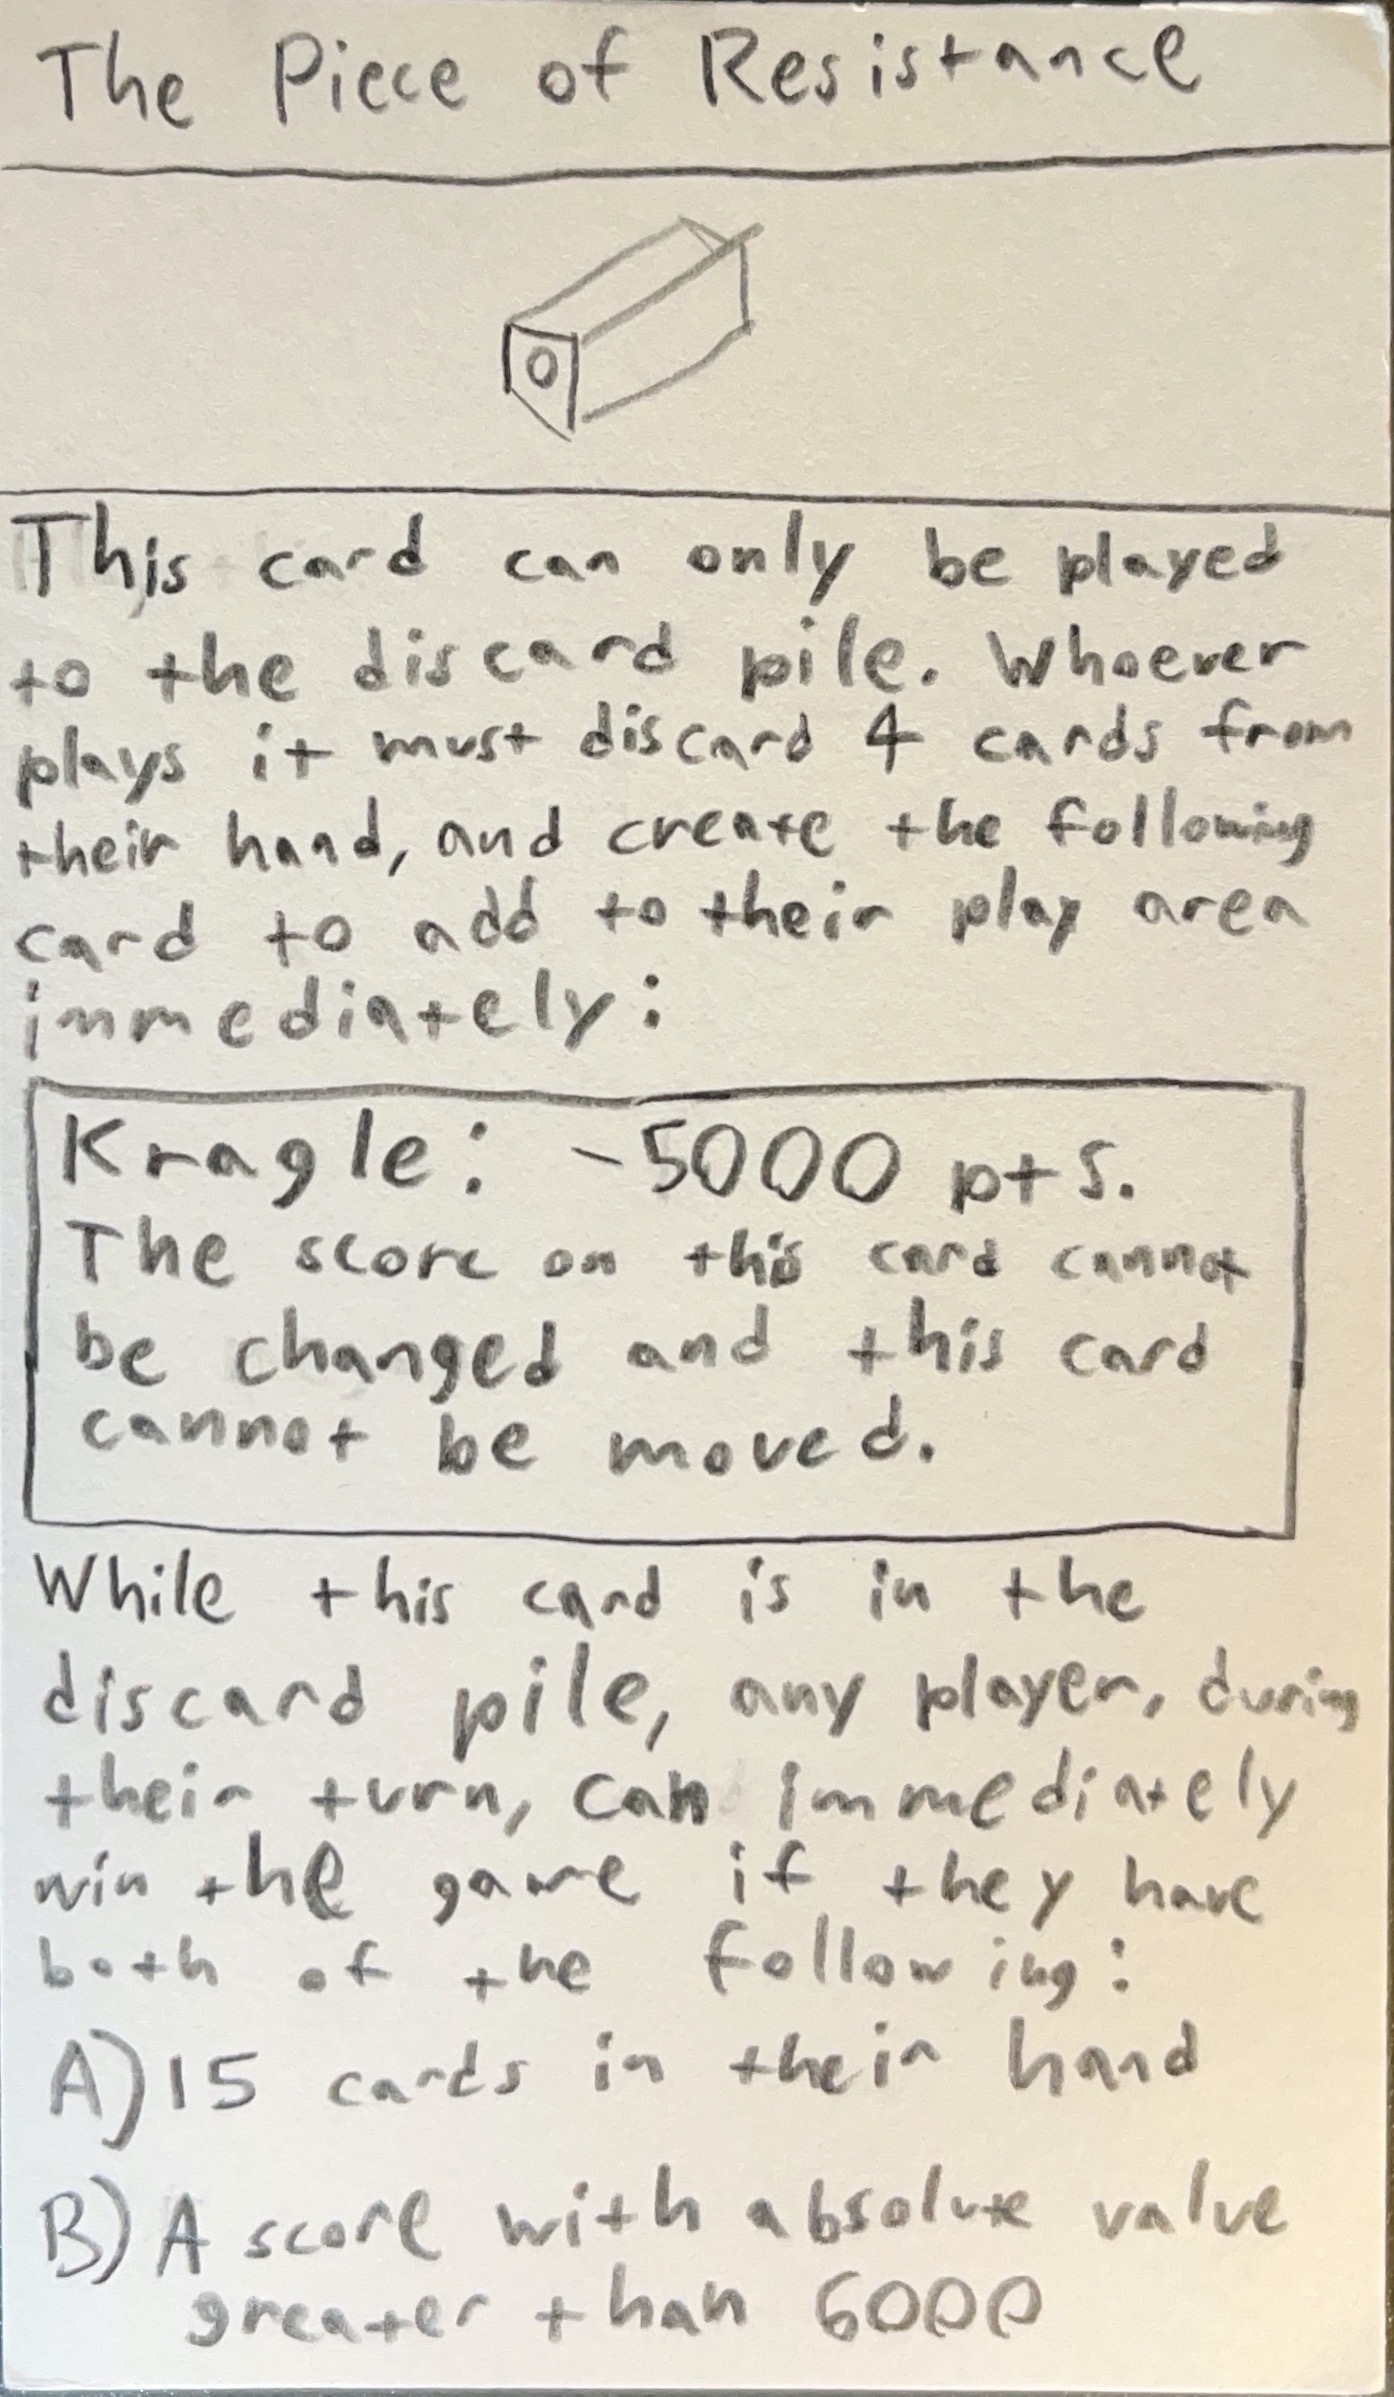 The Piece of Resistance
This card can only be played
to the discard pile. Whoever
plays it must discard 4 cards from
their hand, and create the following
card to add to their play area
immediately:
Kragle: -5000 pts.
The score on this card cannot
be changed and this card
cannot be moved.
While this card is in the
discard pile, any player, during
their turn, can immediately
win the game if they have
both of the following:
A) 15 cards in their hand
B) A score with absolute value
greater than 6000